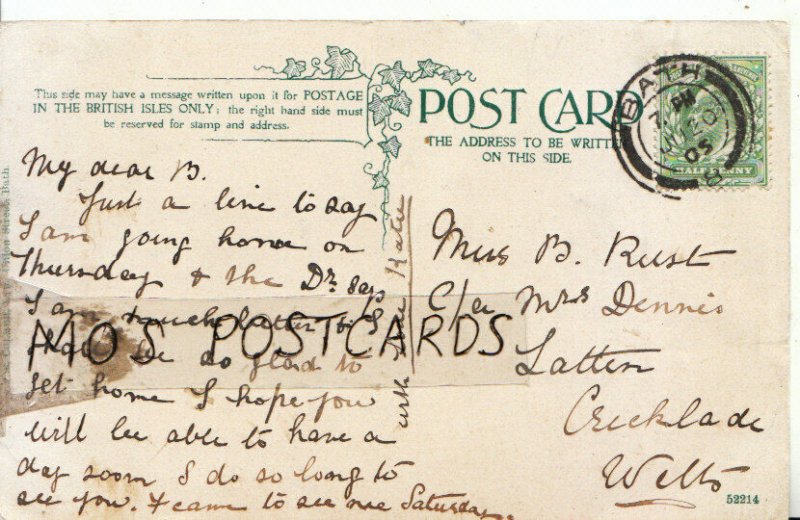 This side may have a message written upon it for POSTAGE
IN THE BRITISH ISLES ONLY; the right hand side must
be reserved for stamp and address.
POST CARD
THE ADDRESS TO BE WRITTE
ON THIS SIDE.
BATH
7. PM
05
HALFPENNY
My dear B.
Just a line to say
I am going home on
Thursday & the Dr. says
I am much better & I
shall be so glad to
get home I hope you
will be able to have a
day soon I do so long to
see you. & came to see me Saturday.
with love Katie
Miss B. Rust
C/o Mrs Dennis
Latten
Cricklade
Wilts
MO'S POSTCARDS
52214